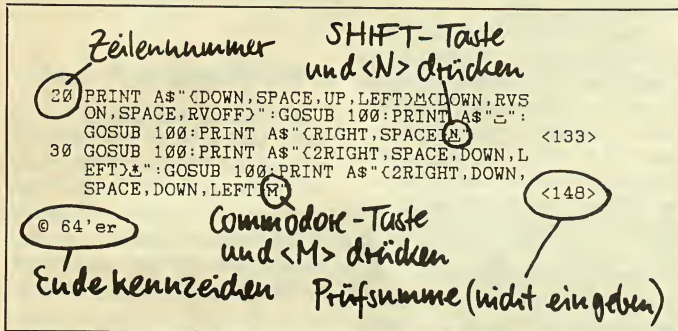 Zeilennummer
SHIFT-Taste
und <N> drücken
20 PRINT A$"{DOWN,SPACE,UP,LEFT}M{DOWN,RVS
ON,SPACE,RVOFF}":GOSUB 100:PRINT A$"-":
GOSUB 100:PRINT A$"{RIGHT,SPACE}N" <133>
30 GOSUB 100:PRINT A$"{2RIGHT,SPACE,DOWN,L
EFT}*":GOSUB 100:PRINT A$"{2RIGHT,DOWN,
SPACE,DOWN,LEFT}M" <148>
© 64'er
Commodore-Taste
und <M> drücken
Endekennzeichen
Prüfsumme (nicht eingeben)